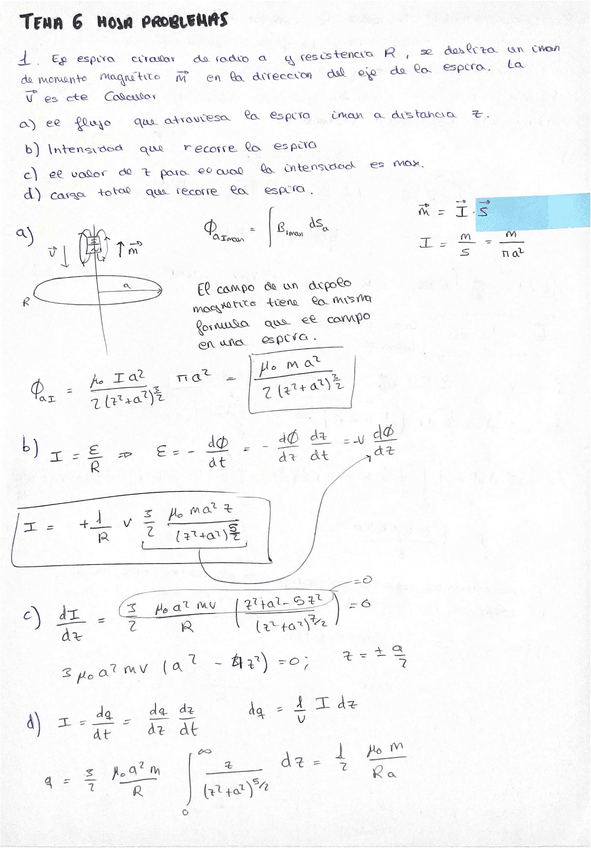 TEMA 6 HOJA PROBLEMAS
1. Eje espira circular de radio a y resistencia R, se desliza un iman
de momento magnético m⃗ en la direccion del eje de la espira. La
v⃗ es cte Calcular
a) el flujo que atraviesa la espira iman a distancia z.
b) Intensidad que recorre la espira
c) el valor de z para el cual la intensidad es max.
d) carga total que recorre la espira.
a)
v⃗ ↓ ↑ m⃗
a
R
ϕ_{a Iman} = ∫ B_{iman} dS_a
m⃗ = I⃗ · S⃗
I = m/S = m/πa²
El campo de un dipolo
magnetico tiene la misma
formula que el campo
en una espira.
ϕ_{aI} = μ₀ I a² / 2(z²+a²)^{3/2} πa² = μ₀ m a² / 2(z²+a²)^{3/2}
b) I = ε/R ⇒ ε = - dϕ/dt = - dϕ/dz dz/dt = -v dϕ/dz
I = +1/R v 3/2 μ₀ m a² z / (z²+a²)^{5/2}
c) dI/dz = 3/2 μ₀ a² m v / R ( z²+a²-5z² / (z²+a²)^{7/2} ) = 0
=0
3 μ₀ a² m v (a² - 4z²) = 0; z = ± a/2
d) I = dq/dt = dq/dz dz/dt dq = 1/v I dz
q = 3/2 μ₀ a² m / R ∫₀^∞ z / (z²+a²)^{5/2} dz = 1/2 μ₀ m / R a